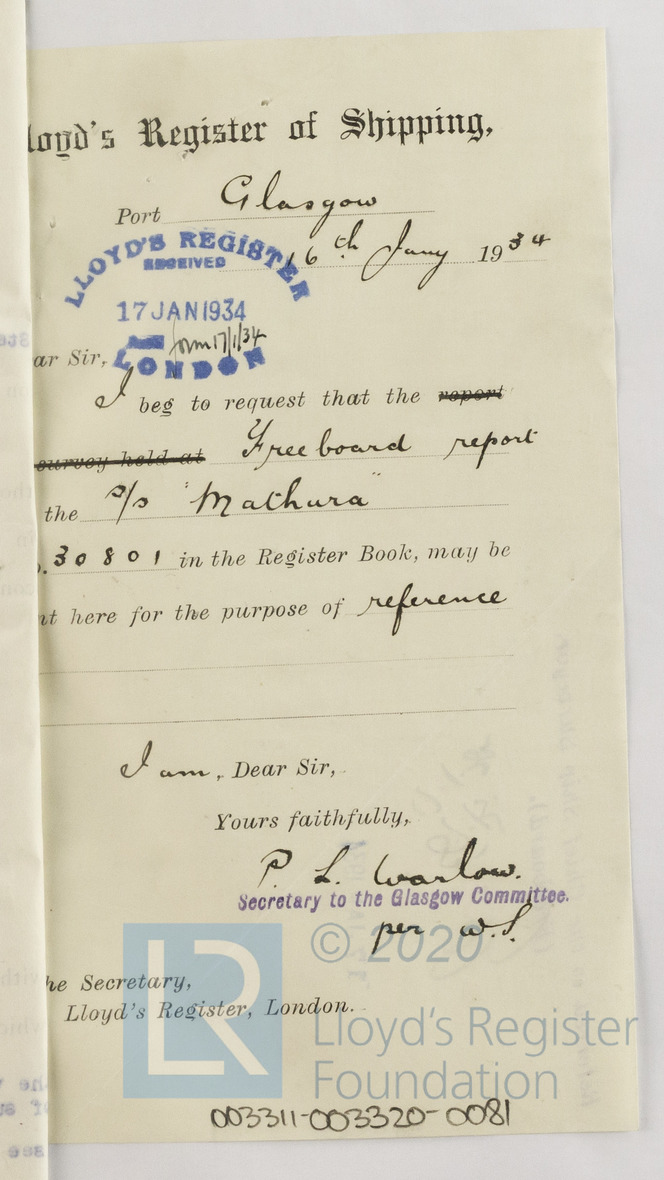 loyd's Register of Shipping,
Port Glasgow
16th Jany 1934
LLOYD'S REGISTER
RECEIVED
17 JAN 1934
17/1/34
LONDON
ar Sir,
I beg to request that the report
survey held at Freeboard report
the s/s "Mathura"
o. 30801 in the Register Book, may be
nt here for the purpose of reference
I am, Dear Sir,
Yours faithfully,
P. L. Warlow.
Secretary to the Glasgow Committee.
per W.S.
he Secretary,
Lloyd's Register, London.
LR
© 2020
Lloyd's Register
Foundation
003311-003320-0081